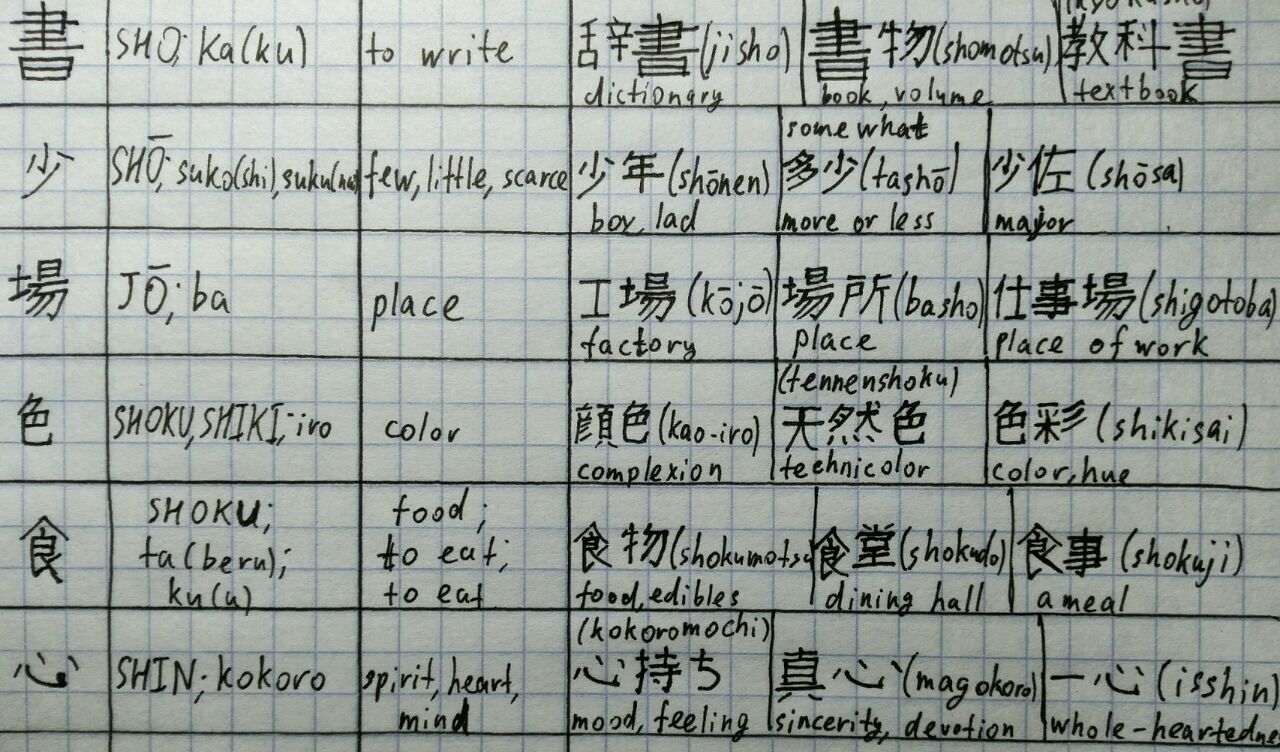 書
SHO; ka(ku)
to write
辞書(jisho)
dictionary
書物(shomotsu)
book, volume
教科書
textbook
少
SHŌ; suko(shi), suku(nai)
few, little, scarce
少年(shōnen)
boy, lad
somewhat
多少(tashō)
more or less
少佐(shōsa)
major
場
JŌ; ba
place
工場(kōjō)
factory
場所(basho)
place
仕事場(shigotoba)
place of work
色
SHOKU, SHIKI; iro
color
顔色(kao-iro)
complexion
(tennenshoku)
天然色
technicolor
色彩(shikisai)
color, hue
食
SHOKU;
ta(beru);
ku(u)
food;
to eat;
to eat
食物(shokumotsu
food, edibles
食堂(shokudo)
dining hall
食事(shokuji)
a meal
心
SHIN; kokoro
spirit, heart,
mind
(kokoromochi)
心持ち
mood, feeling
真心(magokoro)
sincerity, devotion
一心(isshin)
whole-heartedne